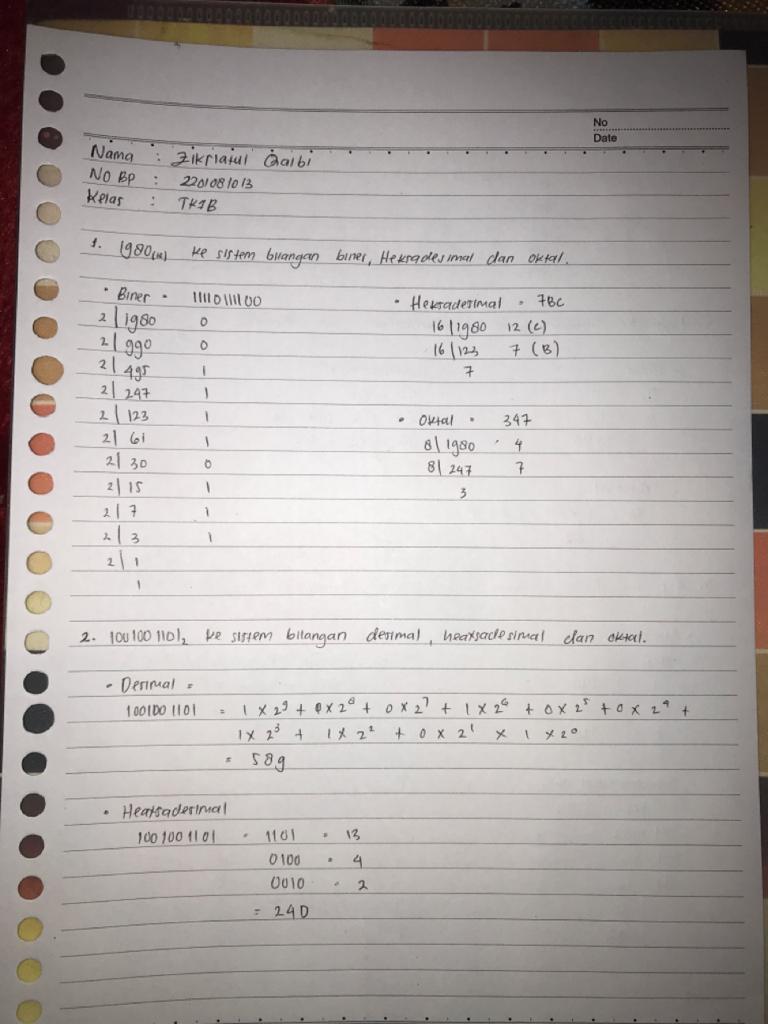 No
Date
Nama : Zikriatul Qalbi
NO BP : 2201081013
Kelas : TK1B
1. 1980(10) ke sistem bilangan biner, Heksadesimal dan oktal.
• Biner = 11110111100
2 | 1980 0
2 | 990 0
2 | 495 1
2 | 247 1
2 | 123 1
2 | 61 1
2 | 30 0
2 | 15 1
2 | 7 1
2 | 3 1
2 | 1
1
• Heksadesimal = 7BC
16 | 1980 12 (C)
16 | 123 7 (B)
7
• Oktal = 347
8 | 1980 = 4
8 | 247 7
3
2. 1001001101₂ ke sistem bilangan desimal, heaksadesimal dan oktal.
• Desimal =
1001001101 = 1 x 2⁹ + 0 x 2⁸ + 0 x 2⁷ + 1 x 2⁶ + 0 x 2⁵ + 0 x 2⁴ +
1 x 2³ + 1 x 2² + 0 x 2¹ x 1 x 2⁰
= 589
• Heaksadesimal
1001001101 = 1101 = 13
0100 = 4
0010 = 2
= 24D